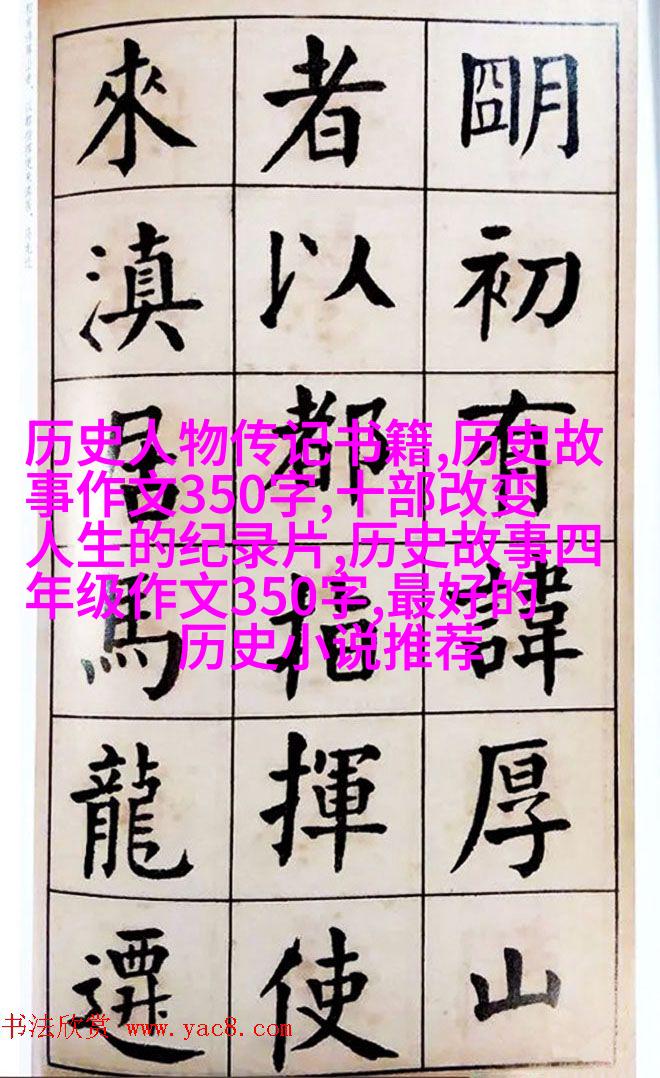 朙初有諱厚山
者以都指揮使
來滇居馬龍遷
历史人物传记书籍,历史故
事作文350字,十部改变
人生的纪录片,历史故事四
年级作文350字,最好的
历史小说推荐
书法欣赏 www.yac8.com